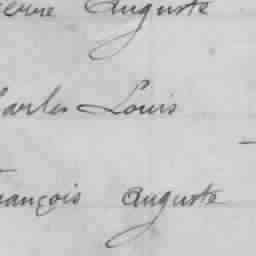 ierre Auguste
harles Louis
rançois Auguste